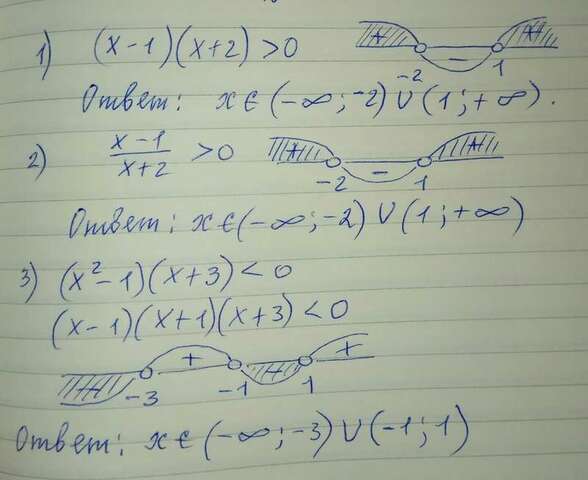 1) (x-1)(x+2)>0 + - + -2 1
Ответ: x∈(-∞;-2)∪(1;+∞).
2) x-1/x+2 >0 + - + -2 1
Ответ: x∈(-∞;-2)∪(1;+∞)
3) (x²-1)(x+3)<0
(x-1)(x+1)(x+3)<0
- + - + -3 -1 1
Ответ: x∈(-∞;-3)∪(-1;1)